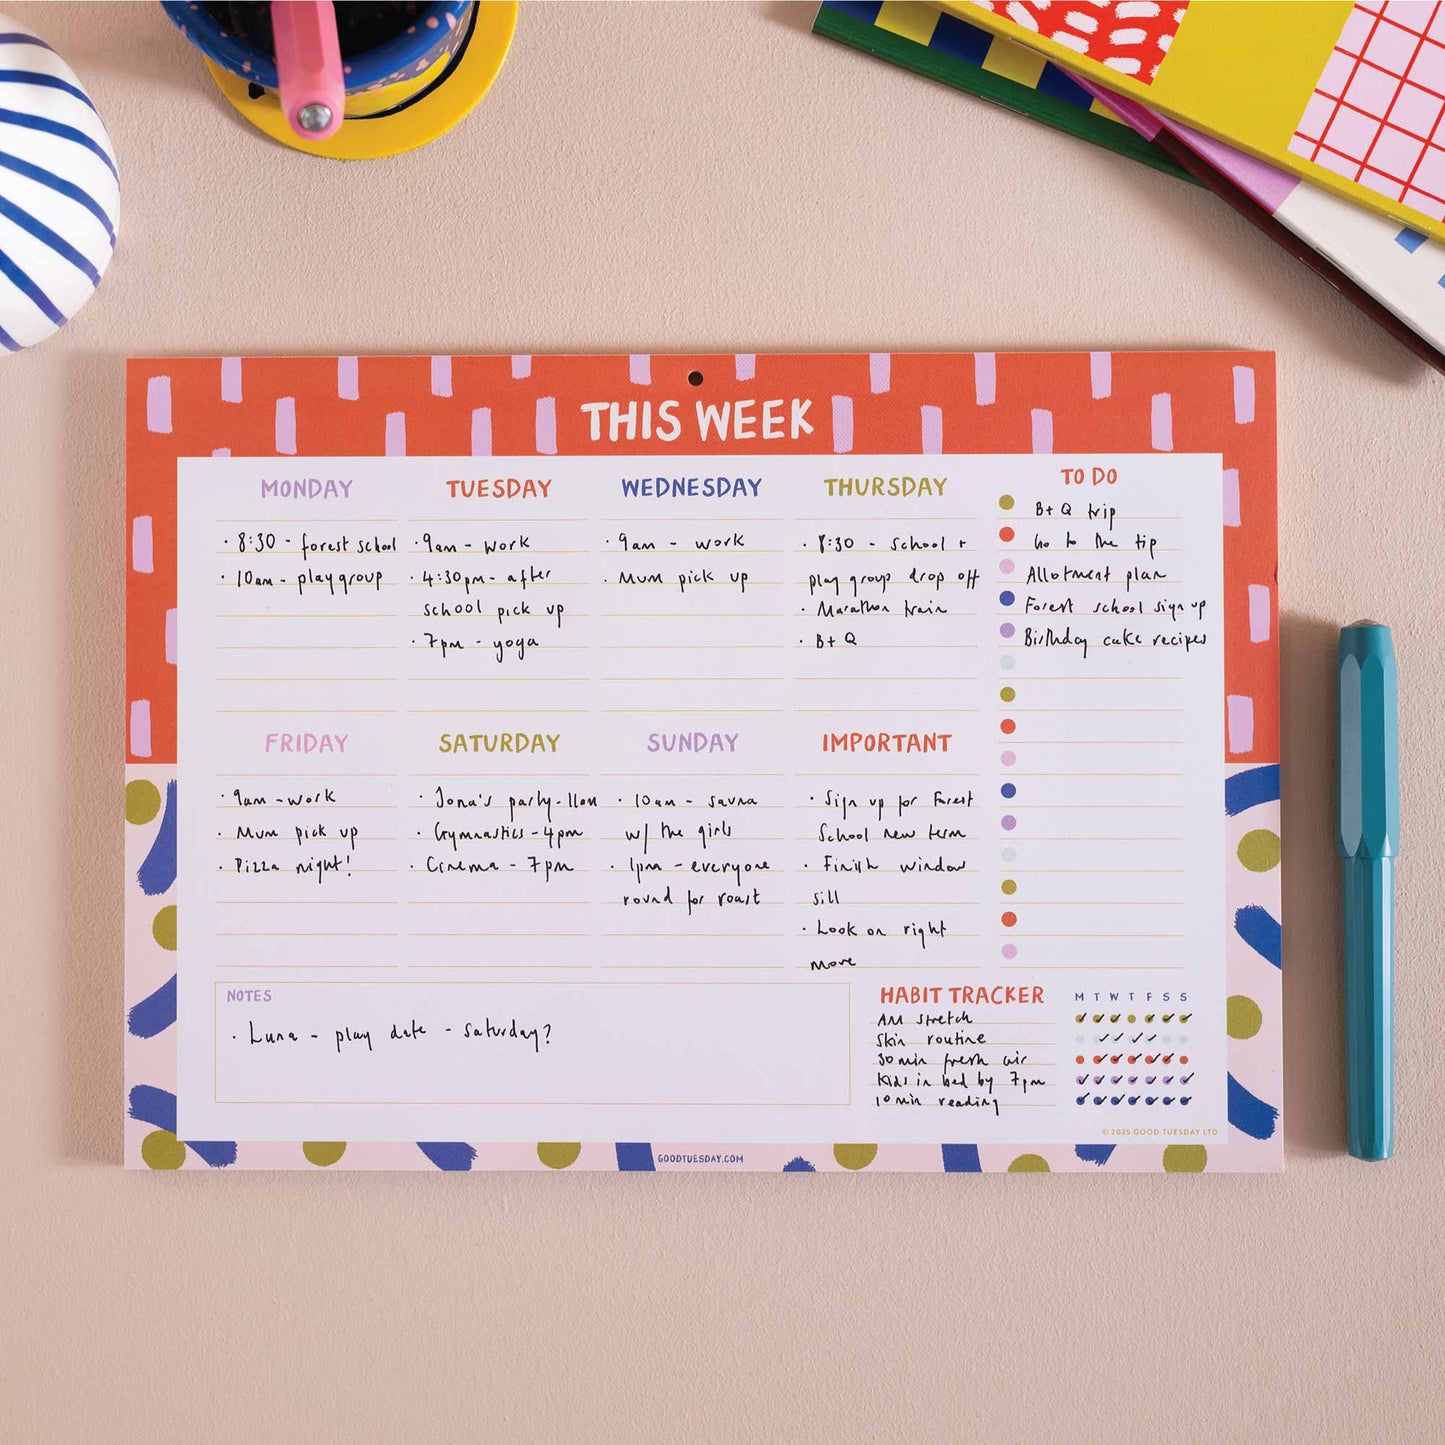 THIS WEEK
MONDAY
· 8:30 - forest school
· 10am - playgroup
TUESDAY
· 9am - work
· 4:30pm - after
school pick up
· 7pm - yoga
WEDNESDAY
· 9am - work
· Mum pick up
THURSDAY
· 8:30 - school +
playgroup drop off
· Marathon train
· B+Q
TO DO
B+Q trip
Go to the tip
Allotment plan
Forest school sign up
Birthday cake recipes
FRIDAY
· 9am - work
· Mum pick up
· Pizza night!
SATURDAY
· Jona's party - 11am
· Gymnastics - 4pm
· Cinema - 7pm
SUNDAY
· 10am - sauna
w/ the girls
· 1pm - everyone
round for roast
IMPORTANT
· Sign up for Forest
School new term
· Finish window
sill
· Look on right
move
NOTES
· Luna - play date - saturday?
HABIT TRACKER M T W T F S S
AM stretch
Skin routine
30 min fresh air
Kids in bed by 7pm
10 min reading
© 2025 GOOD TUESDAY LTD
GOODTUESDAY.COM